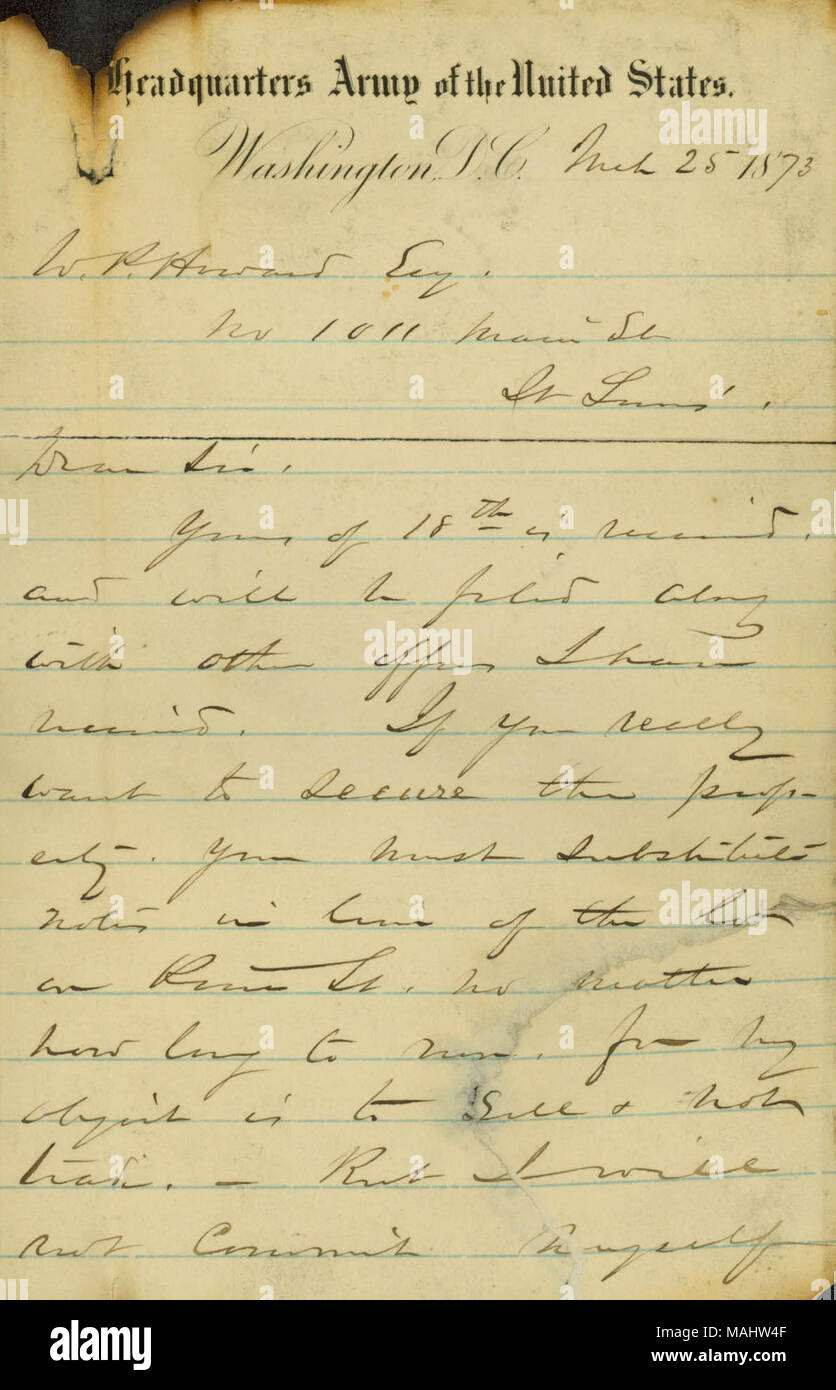 Headquarters Army of the United States.
Washington, D.C. Mch 25 1873
W. P. Howard Esq.
No 1011 Main St
St Louis.
Dear Sir.
Yours of 18th is received.
and will be filed along
with other offers I have
received. If you really
want to secure the prop-
erty. you must substitute
notes in lieu of the lot
on St. no matter
how long to run. for my
object is to Sell & not
trade. — But I will
not Commit myself
alamy
Image ID: MAHW4F
www.alamy.com